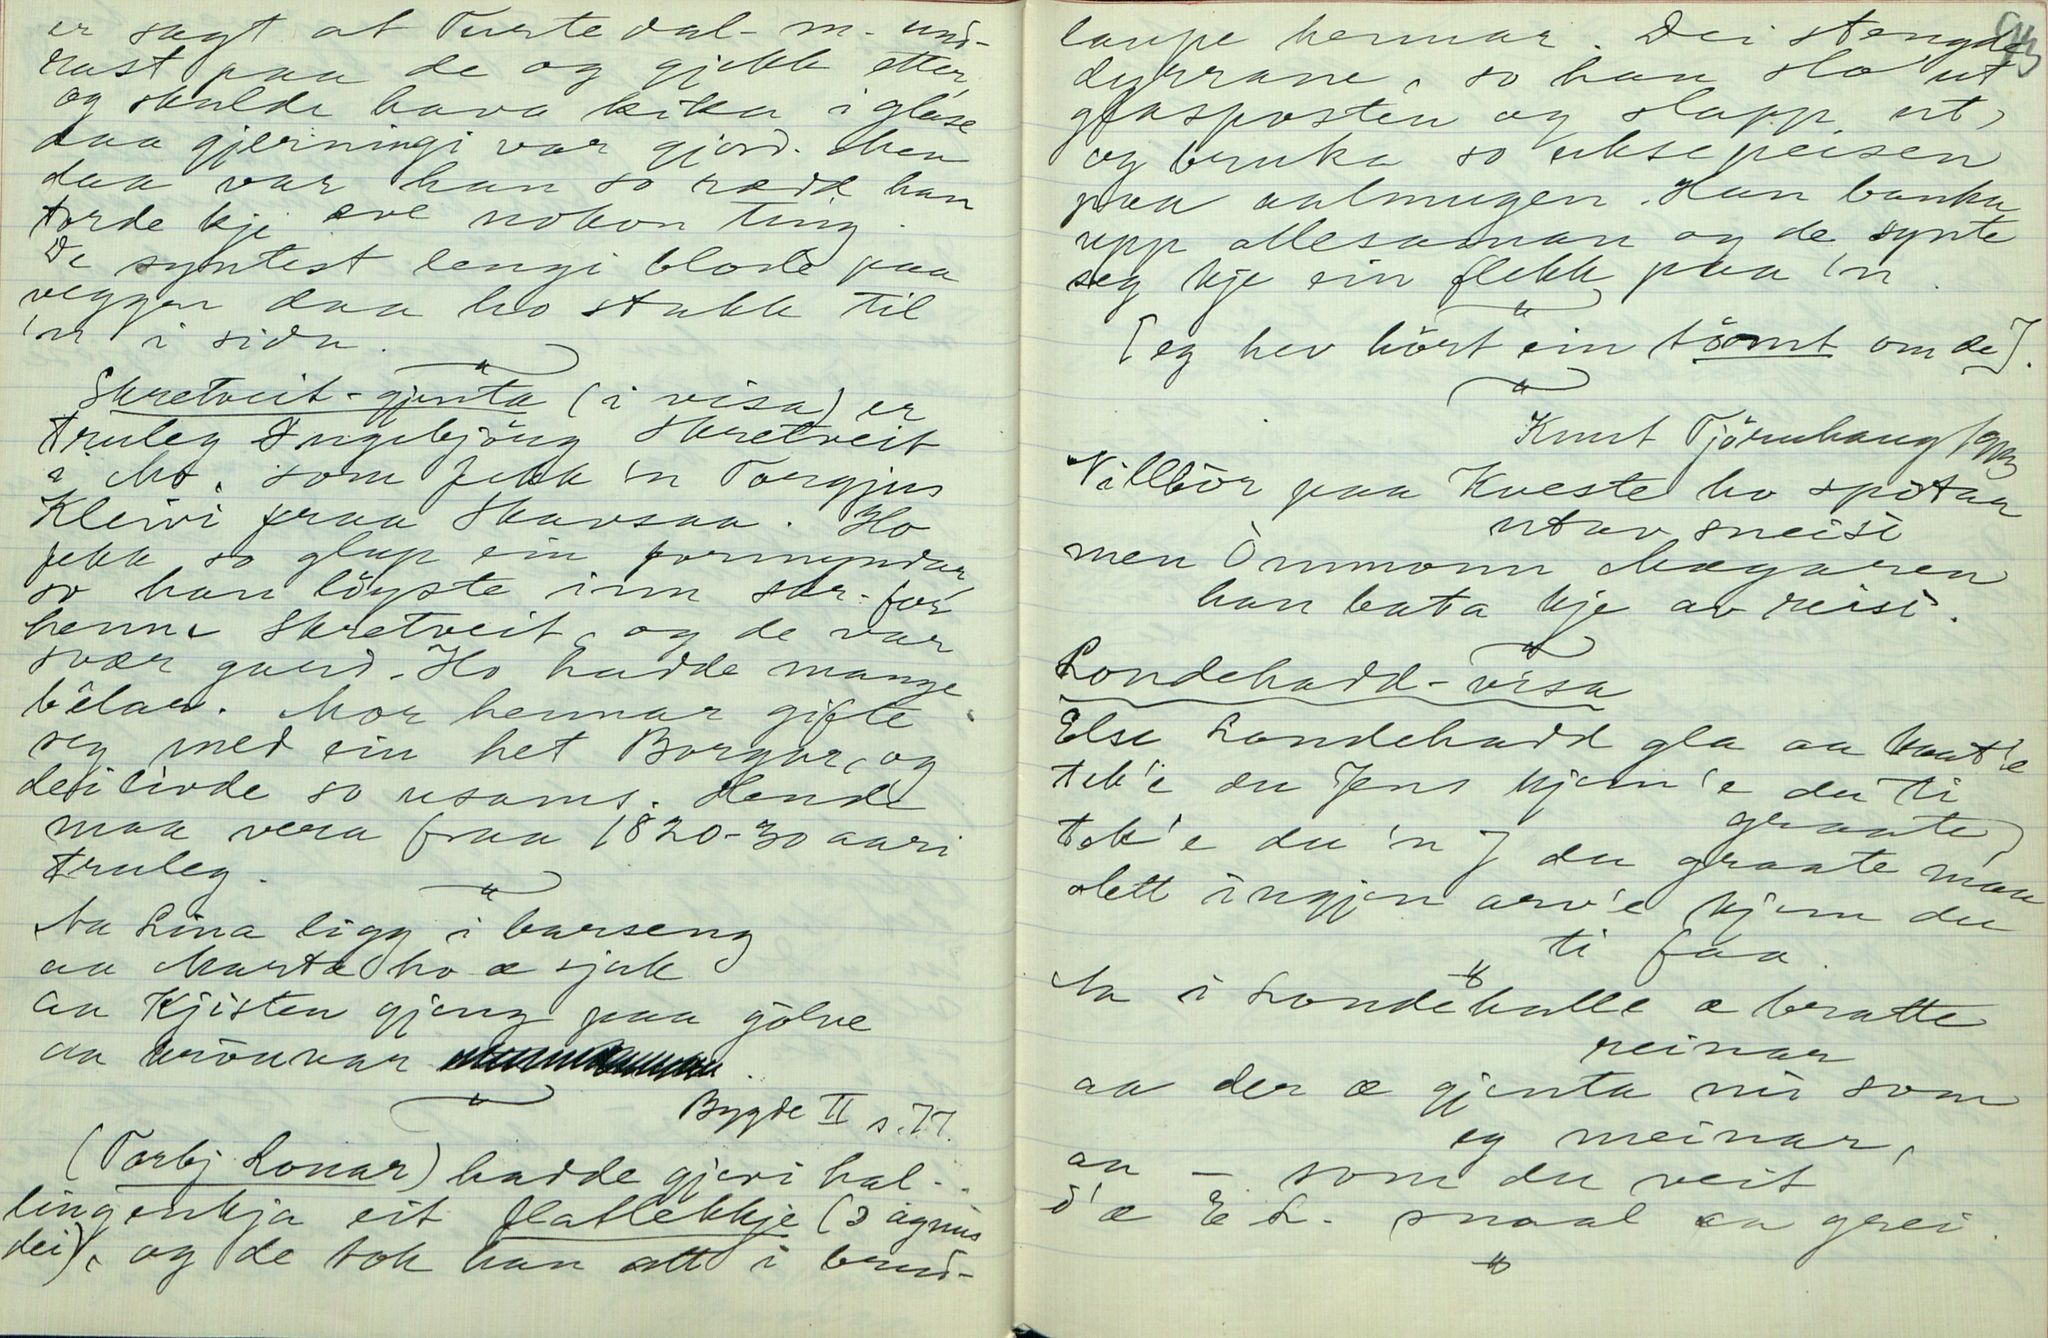 er sagt at Turtedal-m- und-
rast paa de og gjekk etter,
og skulde hava kika i glase
daa gjerningi var gjord. Men
daa var han so rædd han
torde kje øve nokon ting.
De syntest lengi blode paa
veggen daa ho stakk til
'n i sida.
Skretveit-gjenta (i visa) er
truleg Ingebjörg Skretveit
i Mo, som fekk 'n Torgjus
Kleivi fraa Skavsaa. Ho
fekk so glup ein formyndar
so han löyste inn for
henne Skretveit, og de var
svær gard. Ho hadde mange
bêlar. Mor hennar gifte
seg med ein het Borgar, og
dei livde so usams. Hende
maa vera fraa 1820-30 aari
truleg.
Aa Lina ligg i barseng
aa Marta ho æ sjuk
aa Kjisten gjeng paa gölve
aa
Bygde II s. 77.
(Torbj Lonar) hadde gjevi hal-
lingenkja eit flatlekkje (o agnus
dei), og de tok han att i brud-
laupe hennar. Dei stengde
dyrrane, so han slo ut
glasposten og slapp ut,
og bruka so uksepeisen
paa aalmugen. Han banka
upp allesaman og de synte
seg kje ein flekk paa 'n.
[eg hev hört ein töomt om de].
Knut Tjörnhaug
Villbör paa Kveste ho spötaa
utav sneisi
men Ommonn Magaren
han bata kje av reisi.
Londehadd-visa
Else Londehadd gla aa kaat'e
tek'e du Jens kjem'e du ti
graate,
tek'e du 'n J du graate maa
slett ingjen arv'e kjem du
ti faa.
Aa i Londehalle æ bratte
reinar
aa der æ gjenta mi som
eg meinar,
aa – som du veit
d'æ E L. snaal aa grei.